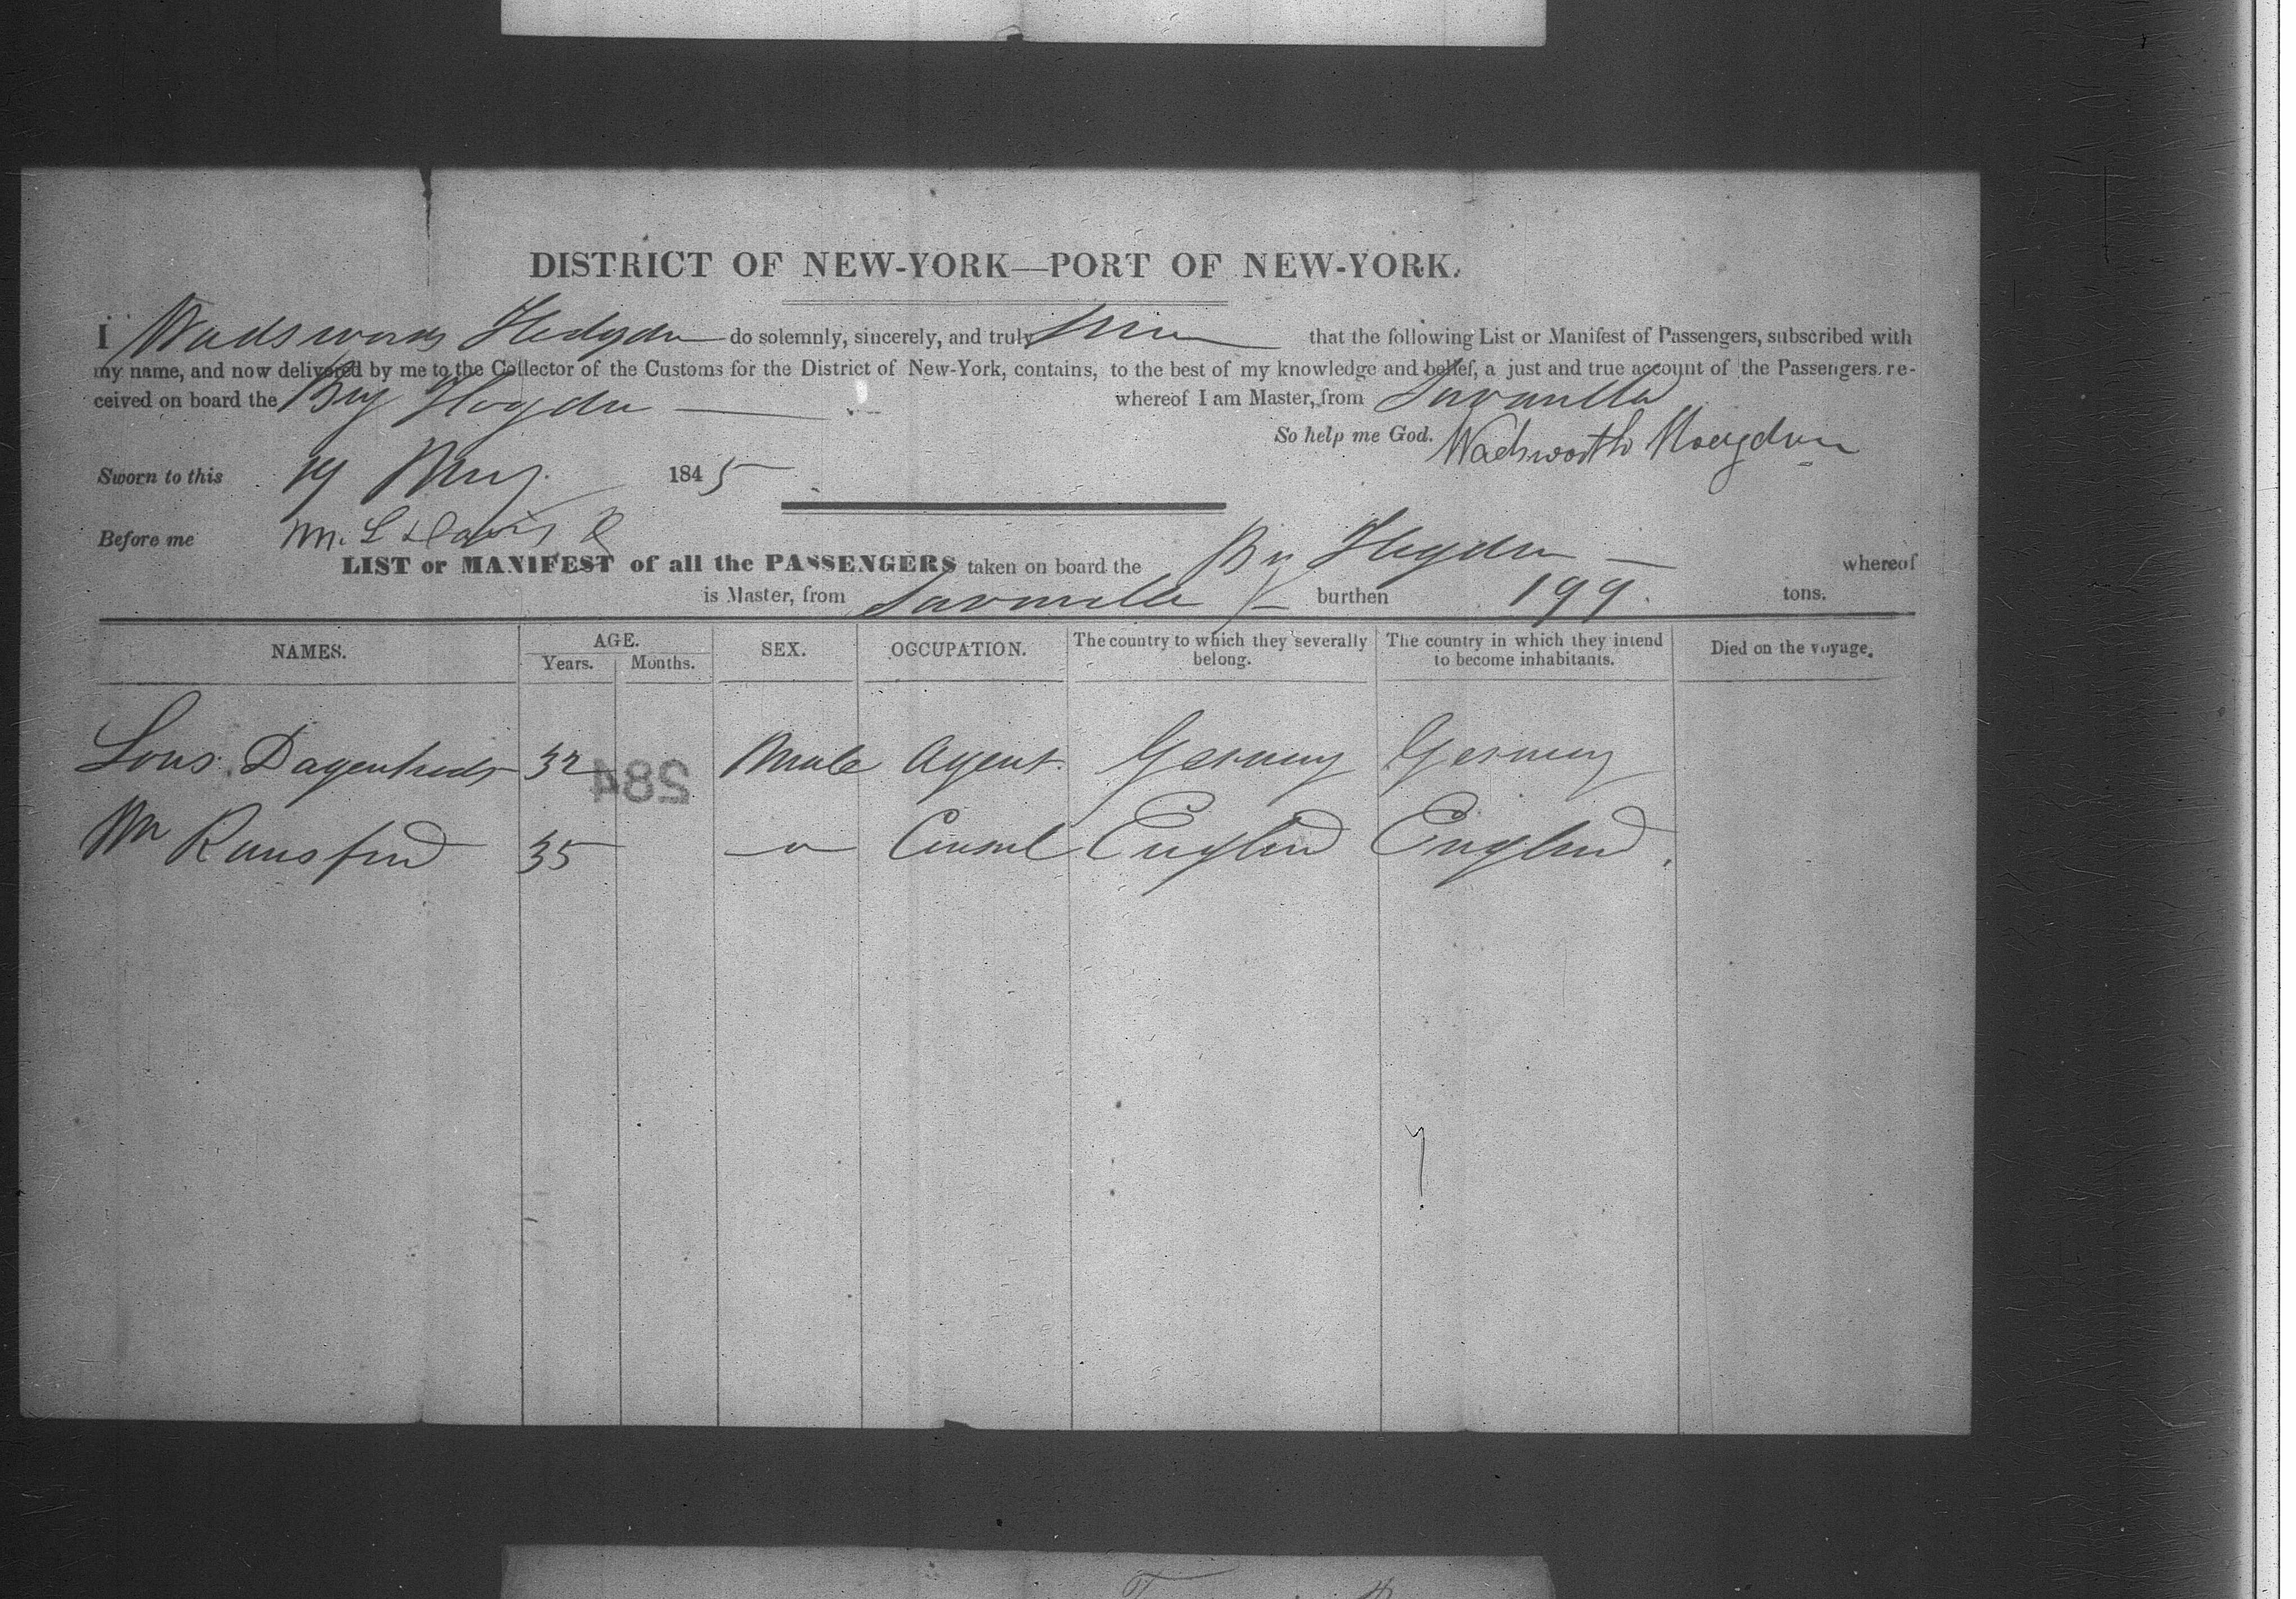 DISTRICT OF NEW-YORK—PORT OF NEW-YORK.
I Wadsworth Hodgdon do solemnly, sincerely, and truly that the following List or Manifest of Passengers, subscribed with
my name, and now delivered by me to the Collector of the Customs for the District of New-York, contains, to the best of my knowledge and belief, a just and true account of the Passengers re-
ceived on board the Brig whereof I am Master, from Savanilla
So help me God. Wadsworth
Sworn to this 19 May 1845
Before me M. L Davis
LIST or MANIFEST of all the PASSENGERS taken on board the Brig whereof
is Master, from Savanilla burthen 199 tons.
NAMES. AGE. SEX. OCCUPATION. The country to which they severally belong. The country in which they intend to become inhabitants. Died on the voyage.
Years. Months.
Dagenhardt 32 Male Agent Germany Germany
284
Wm Ransford 35 Consul England England